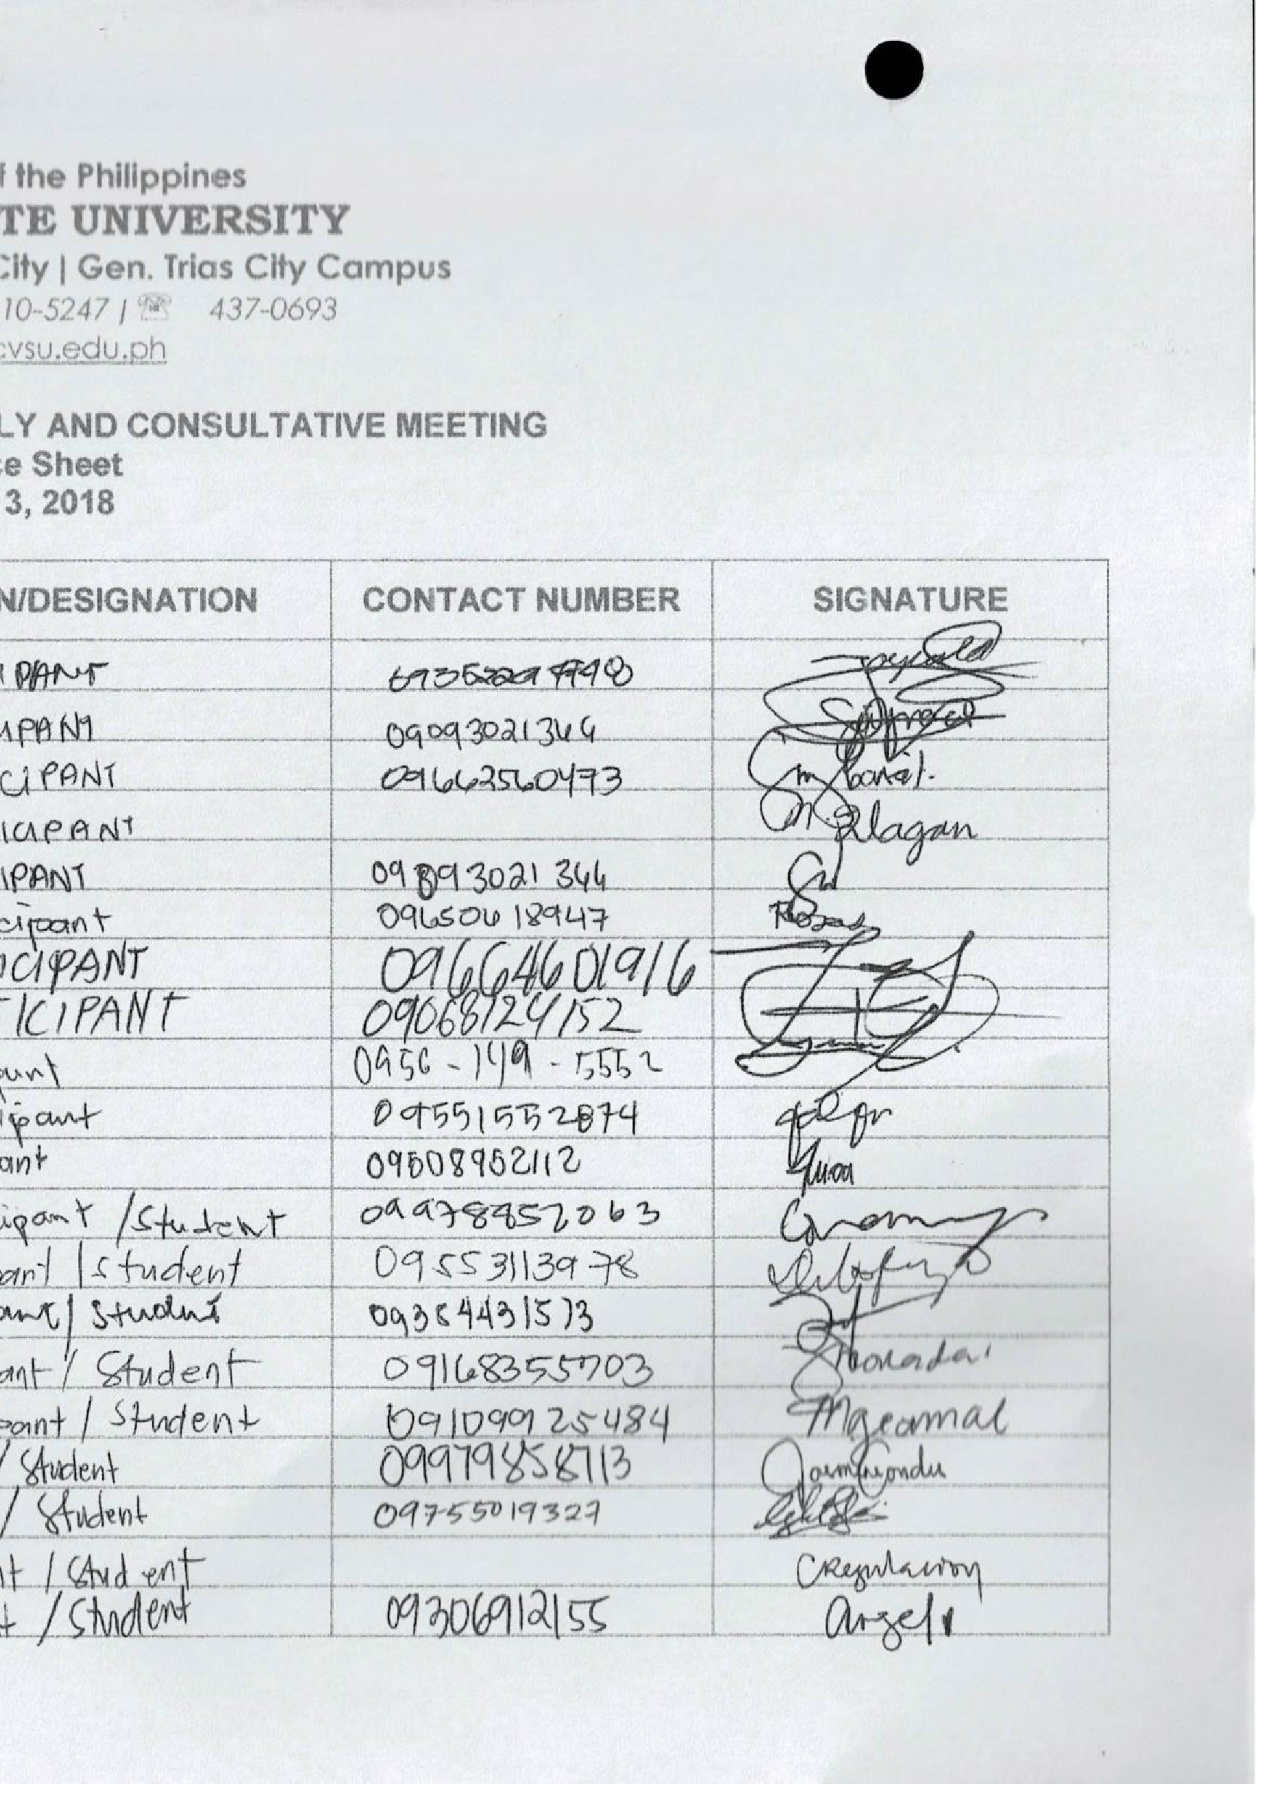 f the Philippines
TE UNIVERSITY
City | Gen. Trias City Campus
10-5247 | ☏ 437-0693
cvsu.edu.ph
LY AND CONSULTATIVE MEETING
ce Sheet
3, 2018
N/DESIGNATION CONTACT NUMBER SIGNATURE
IPANT
IPANT 09093021344
CIPANT 09662560473
ICIPANT Ilagan
IPANT 09893021344
cipant 09650618947 Rosas
ICIPANT 09664601916
TICIPANT 09068124152
pant 0956-149-5552
ipant 09551552874
ant 09508952112
ipant /Student 09978952063
ant |student 09553113978
ant/ Student 09384431573
ant / Student 09168355703
pant / Student 09109925484 Mgeamal
/ Student 09979858713
/ Student 09755019327
nt / Student CRegulacion
t / Student 09306912155 Angeli